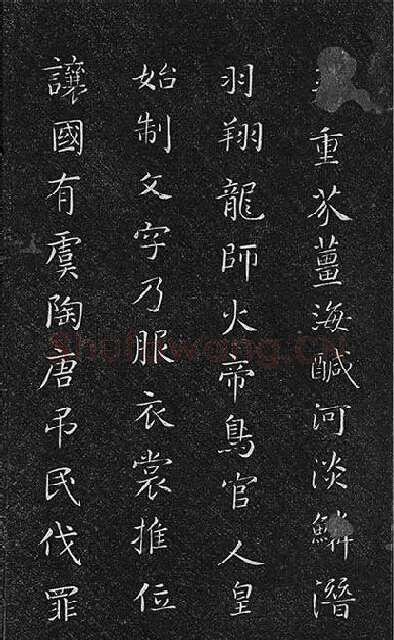 重芥薑海醎河淡鱗潛
羽翔龍師火帝鳥官人皇
始制文字乃服衣裳推位
讓國有虞陶唐吊民伐罪
Shufawang.CN